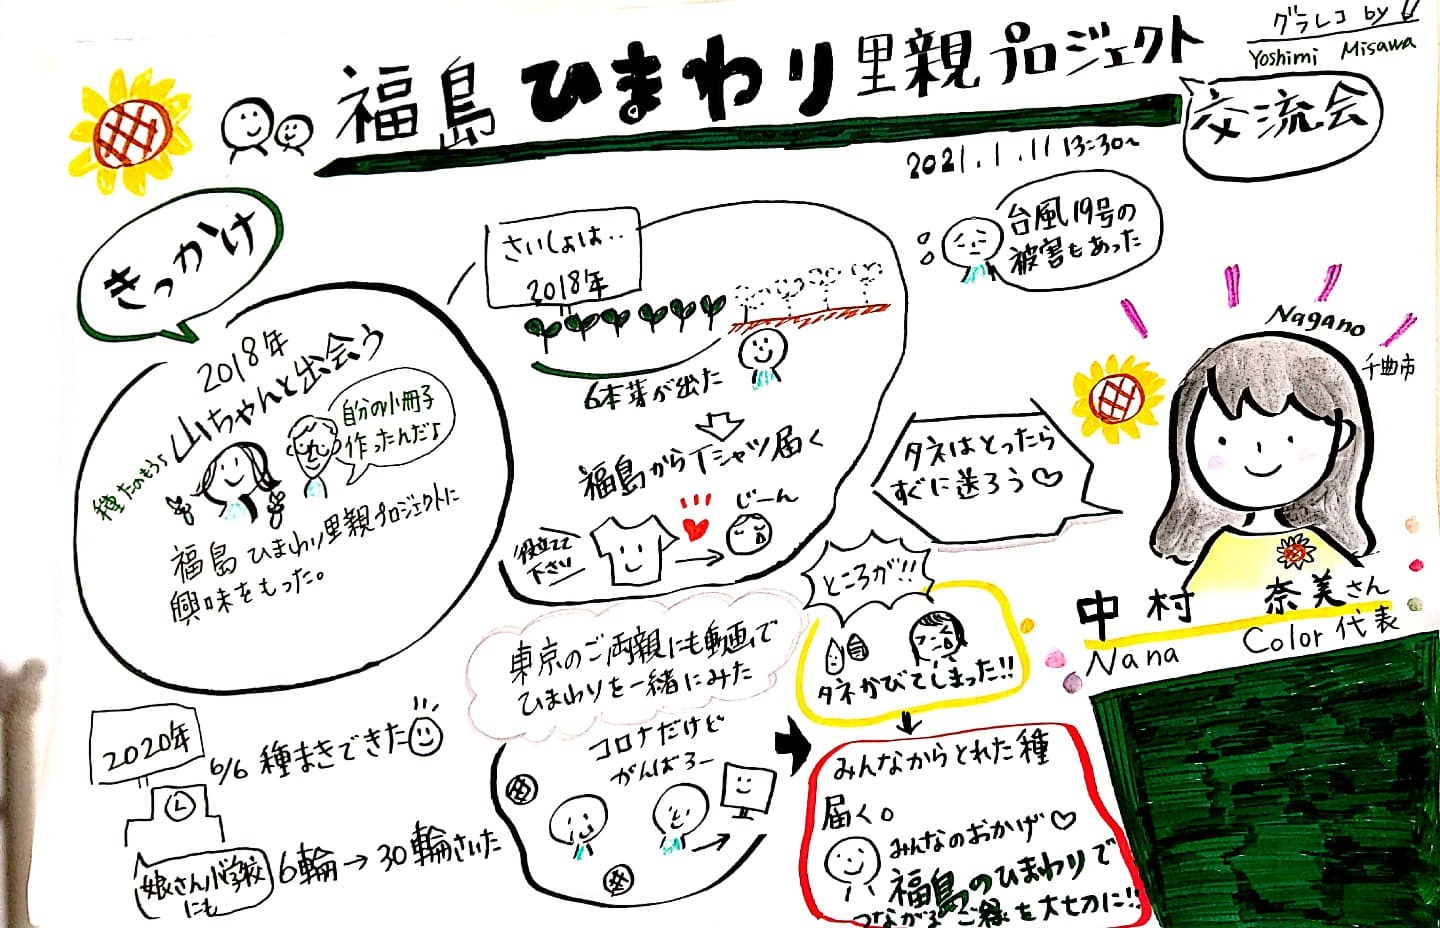 グラレコ by
Yoshimi Misawa
福島ひまわり里親プロジェクト
交流会
2021.1.11 13:30~
きっかけ
2018年
山ちゃんと出会う
自分の小冊子
作ったんだよ
福島ひまわり里親プロジェクトに
興味をもった。
さいしょは..
2018年
6本芽が出た
福島からTシャツ届く
役立てて
下さい
じーん
台風19号の
被害もあった
Nagano
千曲市
タネはとったら
すぐに送ろう♡
中村 奈美さん
Nana Color代表
2020年
6/6 種まきできた
娘さん小学校
にも
6輪→30輪さいた
東京のご両親にも動画で
ひまわりを一緒にみた
コロナだけど
がんばろー
ところが!!
タネかびてしまった!!
みんなからとれた種
届く。
みんなのおかげ♡
福島のひまわりで
つながるご縁を大切に!!